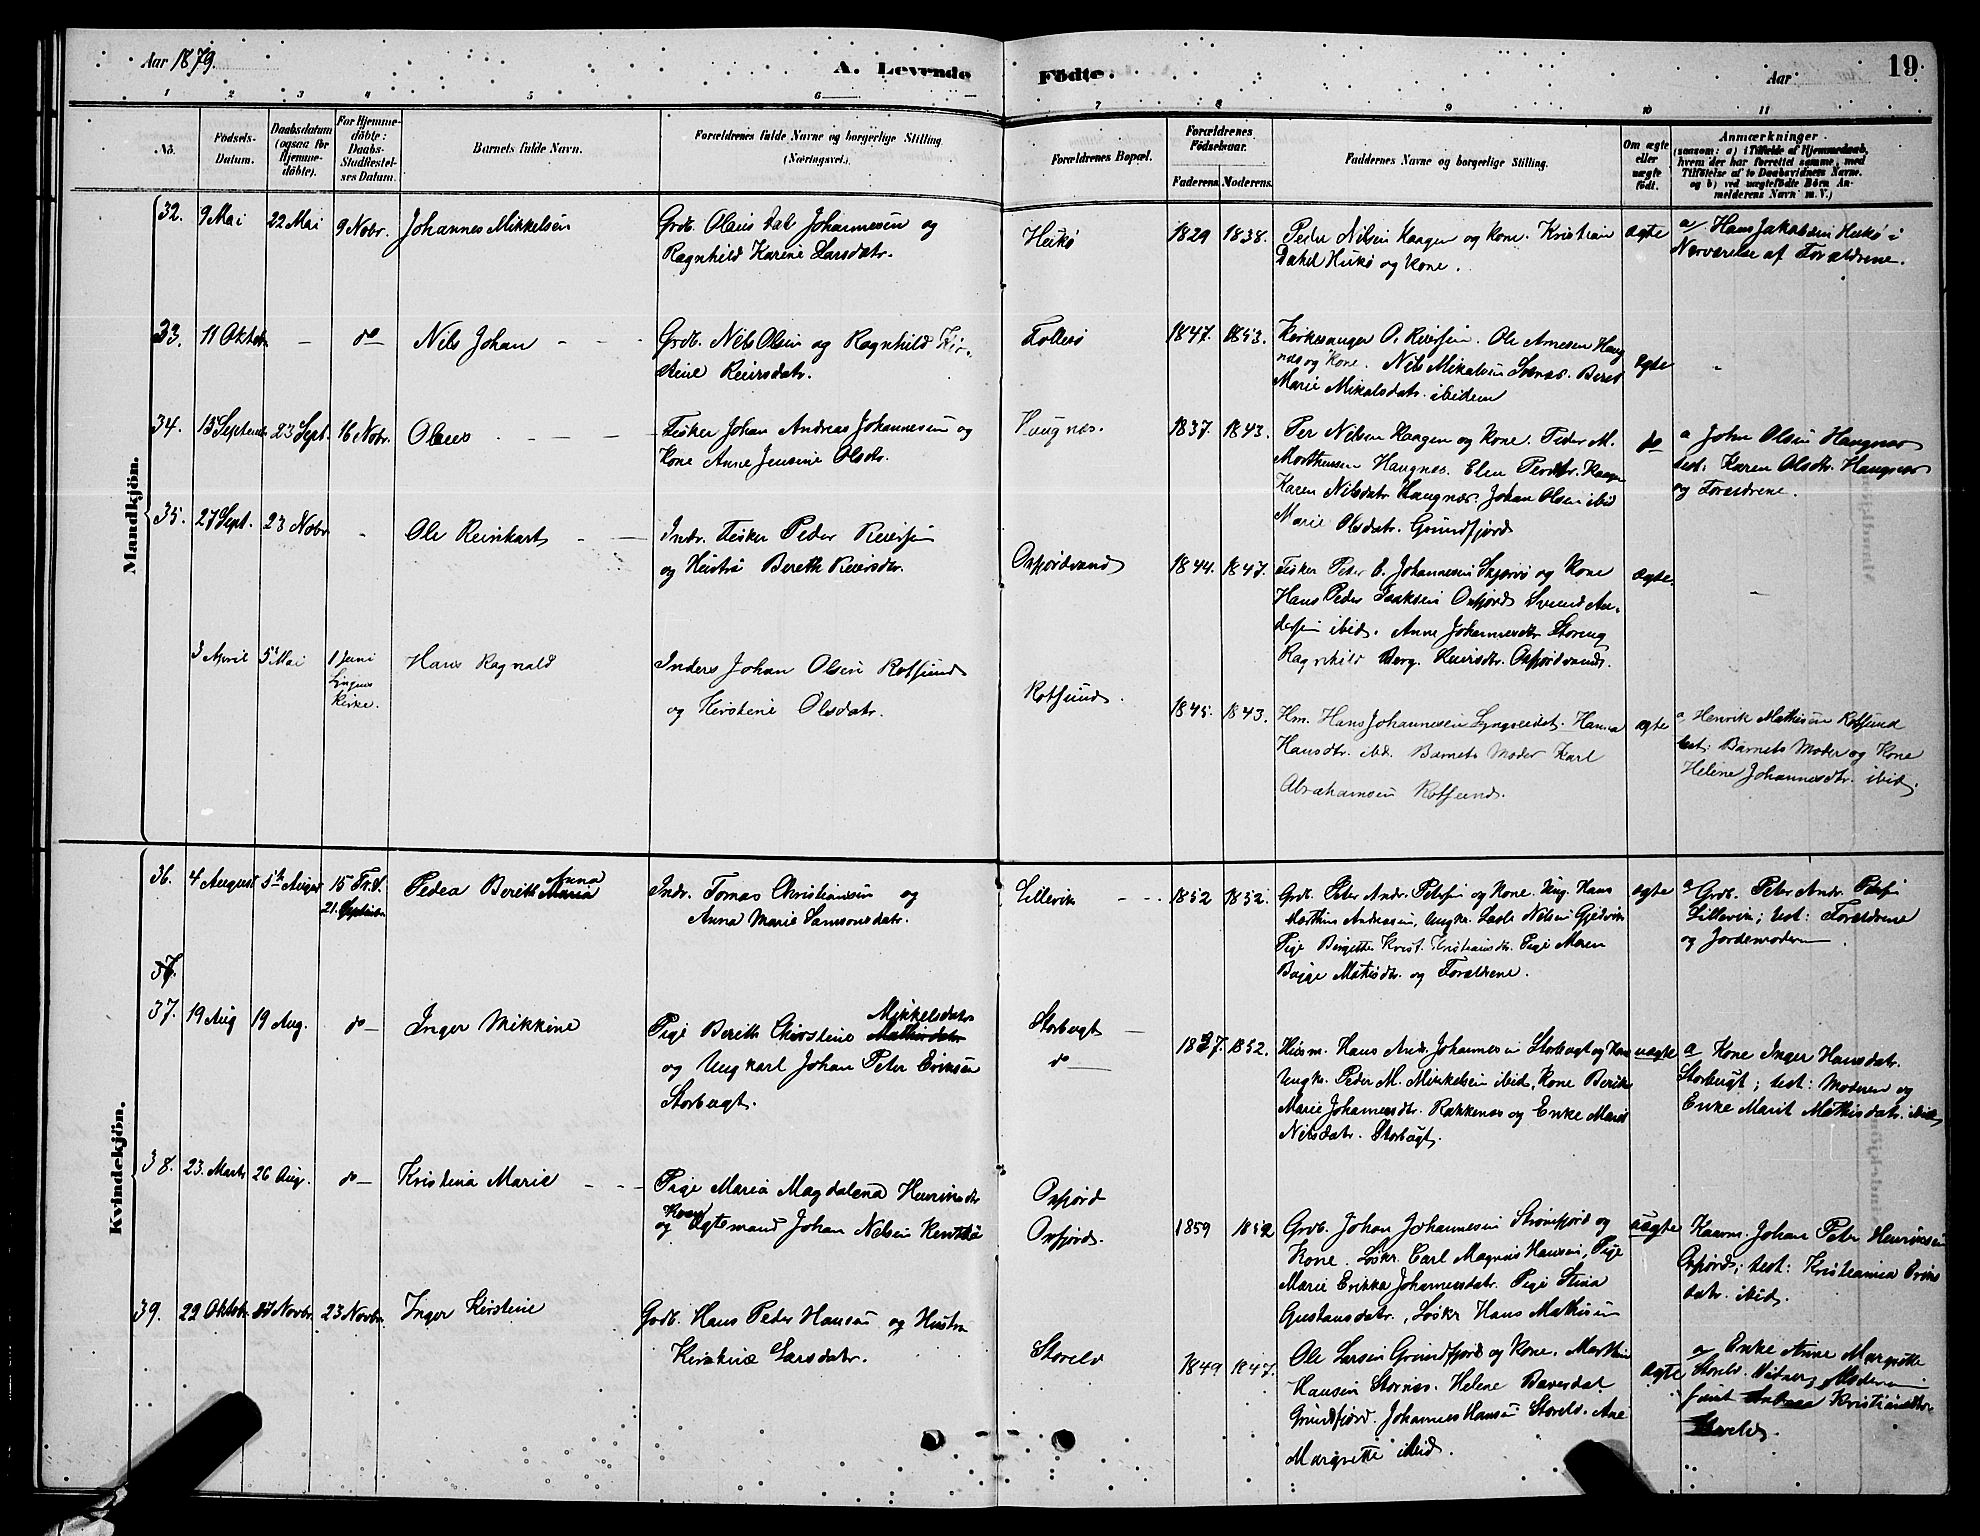 Aar 1879.
A. Levende Födte.
Aar
19
1 2 3 4 5 6 7 8 9 10 11
No.
Födsels-
Datum.
Daabsdatum
(ogsaa for
Hjemme-
döbte).
For Hjemme-
döbte:
Daabs-
Stadfæstel-
ses Datum.
Barnets fulde Navn.
Forældrenes fulde Navne og borgerlige Stilling
(Næringsvei.)
Forældrenes Bopæl.
Forældrenes
Födselsaar.
Faderens. Moderens.
Faddernes Navne og borgerlige Stilling.
Om ægte
eller
uægte
födt.
Anmærkninger
(saasom: a) i Tilfælde af Hjemmedaab,
hvem der har forrettet samme, med
Tilföielse af to Daabsvidners Navne.
og b) ved uægtefödte Börn An-
melderens Navn m. V.)
Mandkjön.
32. 9 Mai 22 Mai 9 Nobr. Johannes Mikkelsen
Grdb. Olaus Dal Johannesen og
Ragnhild Karine Larsdatr.
Heikø 1829 1838.
Peder Nilsen Kaagen og Kone. Kristian
Dahl Heikø og Kone.
ægte
a/ Hans Jakobsen Heikø i
Nærværelse af Forældrene.
33. 11 Oktob. — do Nils Johan
Grdb. Nils Olsen og Ragnhild Kir-
stine Reiersdatr.
Follesø 1847. 1853.
Kirkesanger O. Reiersen. Ole Arnesen Haug
næs og Kone. Nils Mikalsen
Marie Mikalsdatr. ibidem
ægte "
34. 13 Septembr 23 Sept. 16 Nobr. Olaus
Fisker Johan Andreas Johannesen og
Kone Anne Jensine Olsdtr.
Haugnæs. 1837. 1843.
Per Nilsen Kaagen og Kone. Peder M.
Morthensen Haugnæs. Elen Pedrdtr. Kaagen
Karen Nilsdatr Haugnæs. Johan Olsen ibid
Marie Olsdatr. Grundfjord
do
a John Olsen Haugnæs
test: Karen Olsdtr. Haugnæs
og Forældrene.
35. 27 Sept. 23 Nobr - Ole Reinhart
Indr. Fisker Peder Reiersen
og Hustru Bereth Reiersdtr.
Oxfjordvand 1844. 1847.
Fisker Peter C. Johannesen Skjærvø og Kone
Hans Peder Isaksen Oxfjord Svend An-
dersen ibid. Anne Johannesdtr Storeng
Ragnhild Berg. Reiersdtr. Oxfjordvand.
ægte.
3 April 5 Mai 1 Juni
Lyngens
Kirke.
Hans Ragnald
Inders Johan Olsen Rotsund
og Kirstine Olsdatr.
Rotsund. 1845. 1843.
Hm. Hans Johannesen Lyngseidet. Hanna
Hansdtr. ibd. Barnets Moder Karl
Abrahamsen Rotsund.
ægte
a Henrik Mathisen Rotsund
test; Barnets Moder og Kone
Helene Johannesdtr. ibid.
Kvindekjön.
36. 4 August 5te August 15 Tr. S.
21. Septbr
Pedea Berith Anna
Maria
Indr. Tomas Christiansen og
Anna Marie Samonsdatr.
Lillevik 1852 1852.
Grdb. Peter Andr. Petersen og Kone. Ung. Hans
Mathias Andreasen, Ungkr. Lars Nilsen Gjøvik
Pige Birgitte Krist. Kristiansdtr. Pige Maren
Bagge Mathisdtr. og Forældrene.
ægte
a Grdb. Peter Andr. Petersen
Lillevik; test: Forældrene
og Jordemoderen.
37.
37. 19 Aug 19 Aug. do Inger Mikkine
Mikkelsdatr.
Pige Berith Chirstine Mathisdatr
og Ungkarl Johan Peter Eriksen
Storbugt.
Storbugt
do 1837. 1852.
Husm. Hans Andr. Johannesen Storbugt og Kone
Ungkr. Peder M. Mikkelsen ibid, Kone Berith
Marie Johannesdtr. Rakkenæs og Enke Marit
Nilsdatr. Storbugt.
uægte
a Kone Inger Hansdatr.
Storbugt; test: Moderen og
Enke Marit Mathisdatr. ibid
38. 23. Marts 26 Aug. do Kristina Marie
Pige Maria Magdalena Henriksdtr
Kvæn
og Ægtemand Johan Nilsen
Oxfjord
Oxfjord. 1859 1852
Grdb. Johan Johannesen Straumfjord og
Kone. Løskr. Carl Magnus Hansen, Pige
Marie Erikka Johannesdatr. Pige Stina
Gustavsdatr., Løskr Hans Mathisen
uægte
Kaarm. Johan Peter Henriksen
Oxfjord; test: Kristianna Eriks
datr. ibid.
39. 22 Oktobr. 27 Novbr. 23 Novbr. Inger Kirstine
Grdb. Hans Peder Hansen og Hustru
Kirstine Larsdatr.
Storelv 1849 1847.
Ole Larsen Grundfjord og Kone. Marthin
Hansen Stornæs. Helene
Grundfjord. Johannes Hansen Storelv. Ane
Margrette ibid.
ægte
a Enke Anne Margrette
Storelv. Vidner, Moderen
samt Andrea Kristiansdtr.
Storelv.